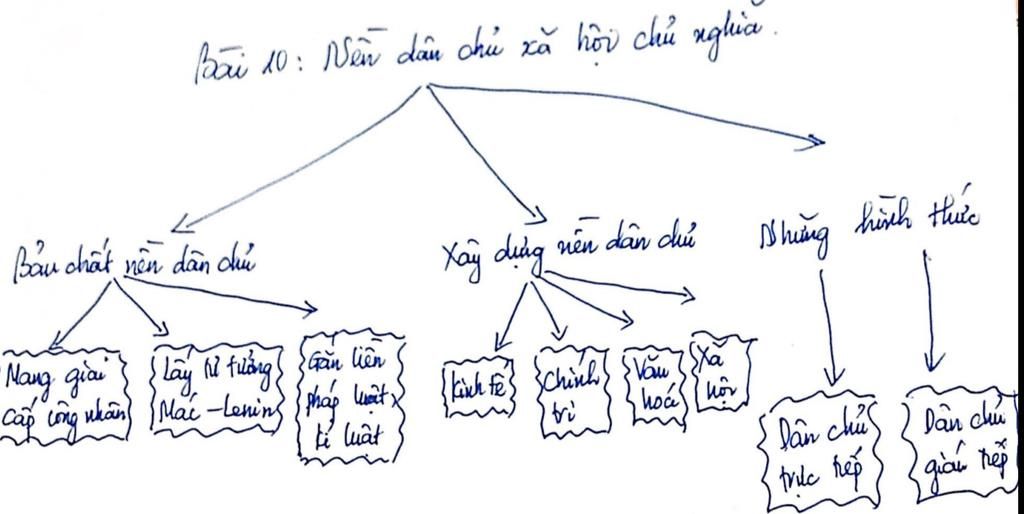 Bài 10: Nền dân chủ xã hội chủ nghĩa.
Bản chất nền dân chủ
Xây dựng nền dân chủ
Những hình thức
Mang giai
cấp công nhân
Lấy tư tưởng
Mác - Lenin
Gắn liền
pháp luật,
kỉ luật
Kinh tế
Chính
trị
Văn
hoá
Xã
hội
Dân chủ
trực tiếp
Dân chủ
gián tiếp